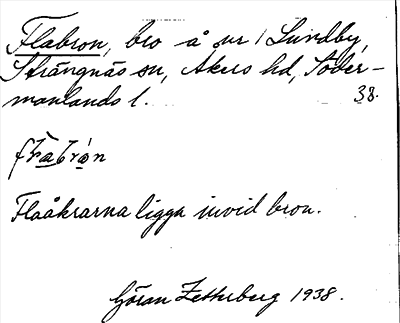 Flabron, bro å nr 1 Lundby,
Strängnäs sn, Åkers hd, Söder-
manlands l. 38.
flabrón
Flaåkrarna ligga invid bron.
Göran Zetterberg 1938.